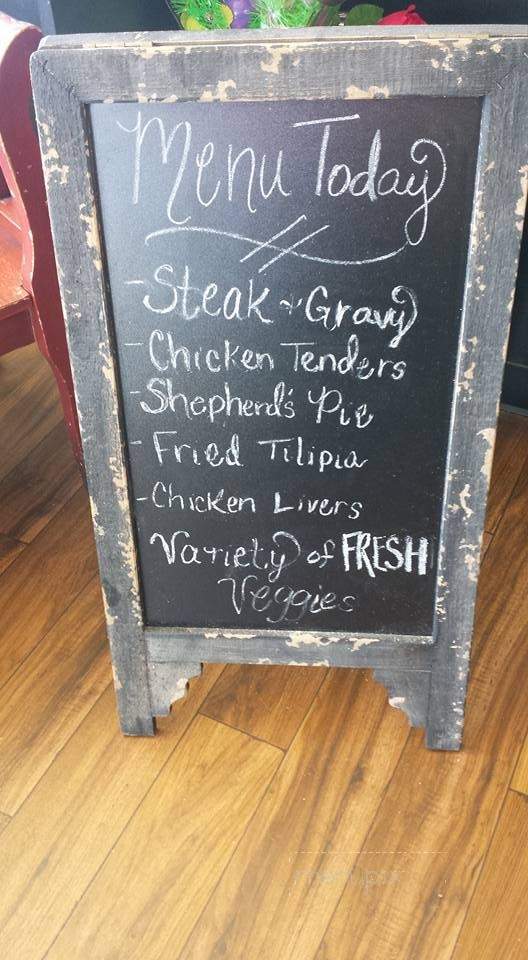 Menu Today
-Steak & Gravy
-Chicken Tenders
-Shepherd's Pie
-Fried Tilipia
-Chicken Livers
Variety of FRESH
Veggies